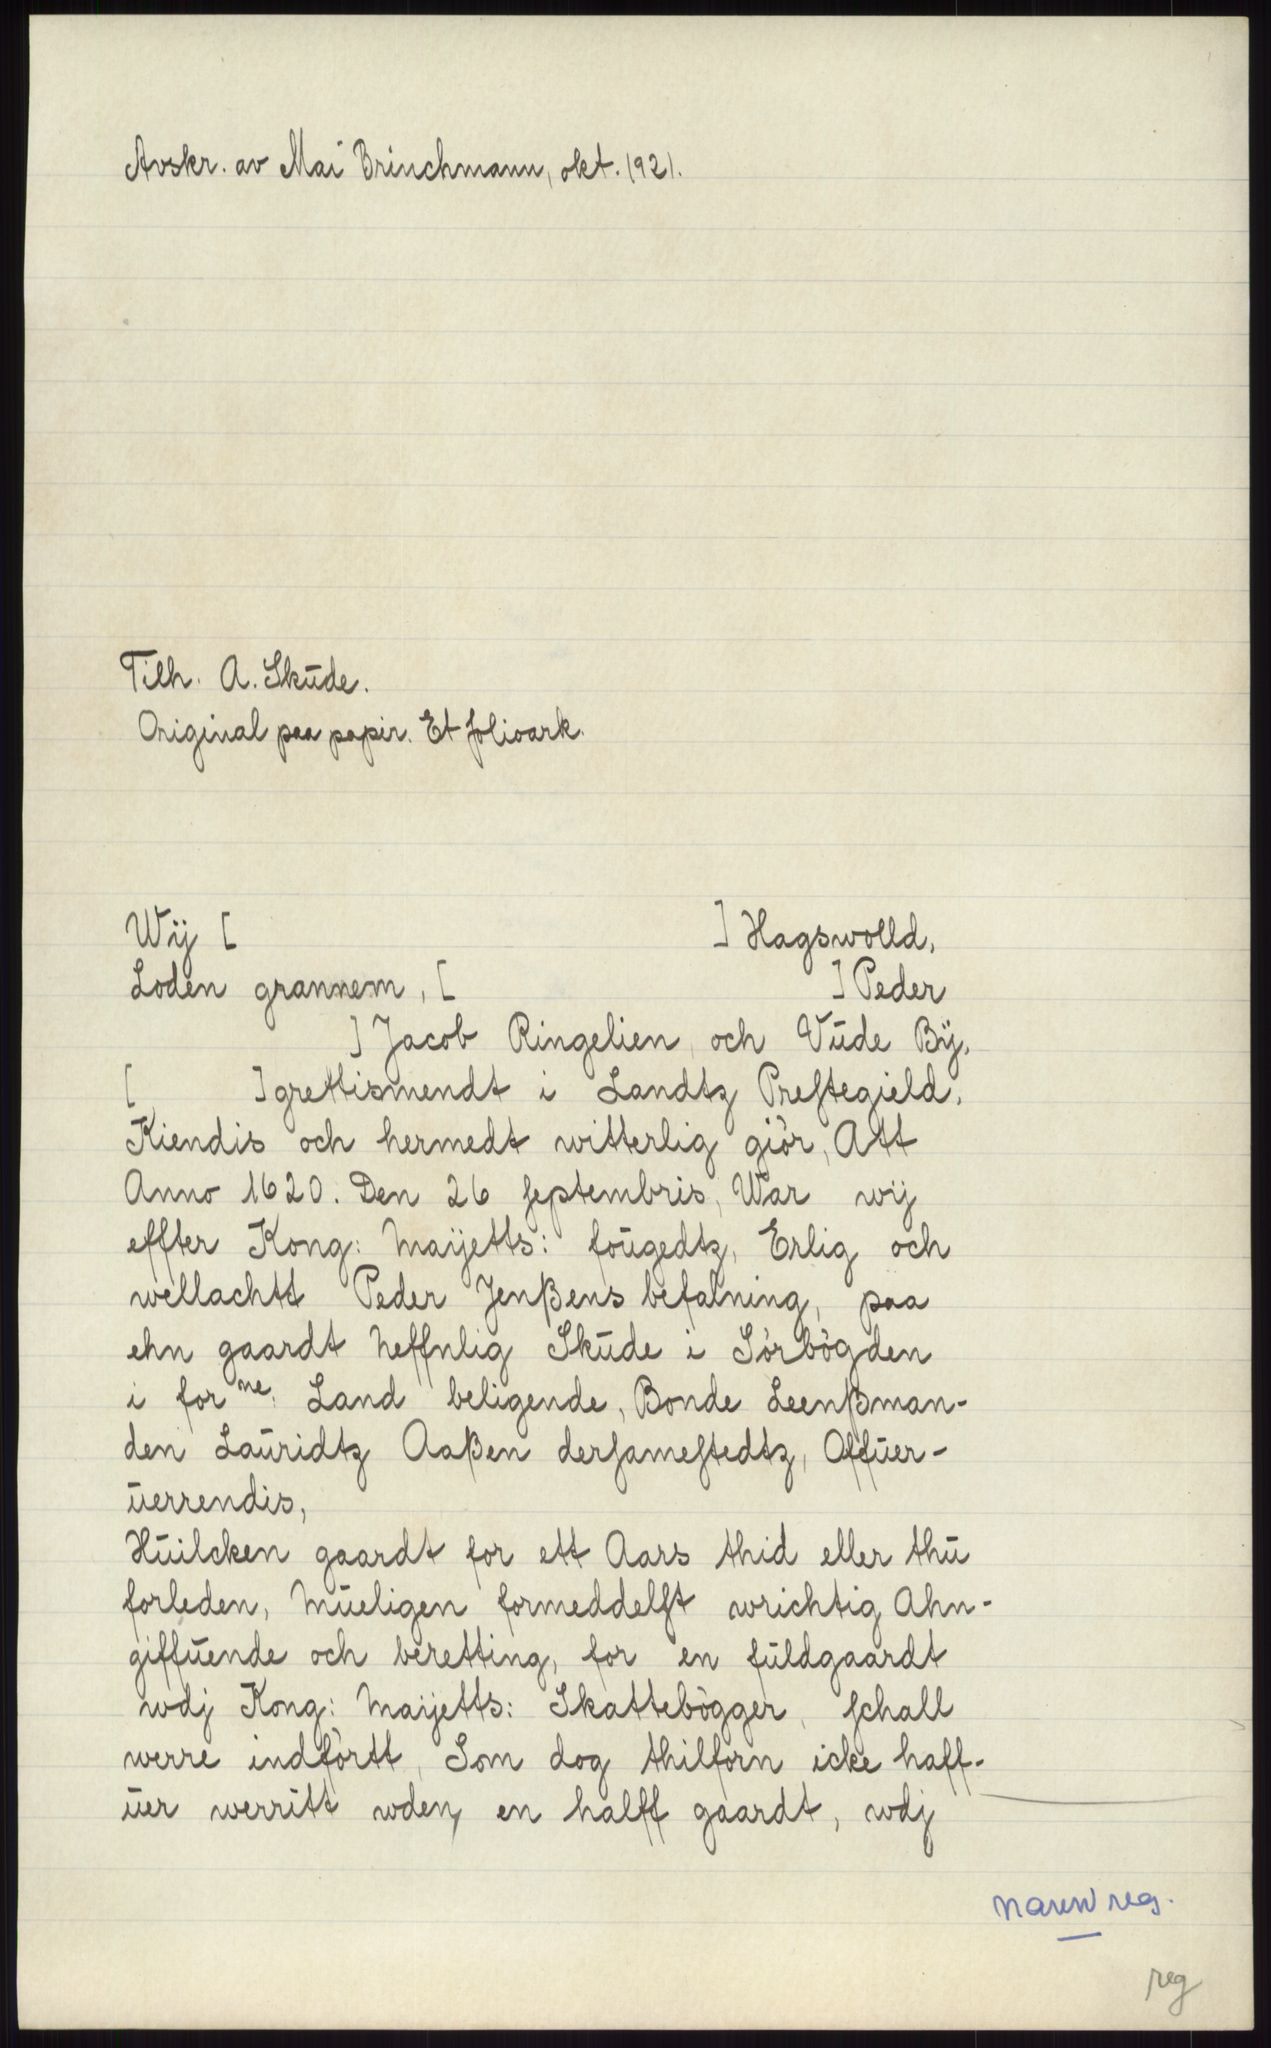 Avskr. av Mai Brinchmann, okt. 1921.
Tilh. A. Skūde.
Original paa papir. Et folioark.
Wij [ ] Hagswolld,
Loden grannem, [ ] Peder
] Jacob Ringelien, och Vūde Bÿ,
[ ] grettismendt i Landtz Prestegield,
Kiendis och hermedt witterlig giör, Att
Anno 1620. Den 26 septembris, War wij
effter Kong: Maÿetts: fougedtz, Erlig och
wellachtt Peder Jenßens befalning, paa
ehn gaardt Neffnlig Skūde i Sörbögden
i for ne. Land beligende, Bonde Leenßman-
den Lauridtz Aaßen dersamestedtz, Offuer-
uerrendis,
Huilcken gaardt for ett Aars thid eller thu
forleden, Mueligen formeddelst wrichtig Ahn-
giffuende och beretting, for en fuldgaardt
wdj Kong: Maÿetts: Skattebögger, schall
werre indförtt, Som dog thilforn icke haff-
uer werritt wden, en halff gaardt, wdj
navn reg.
reg